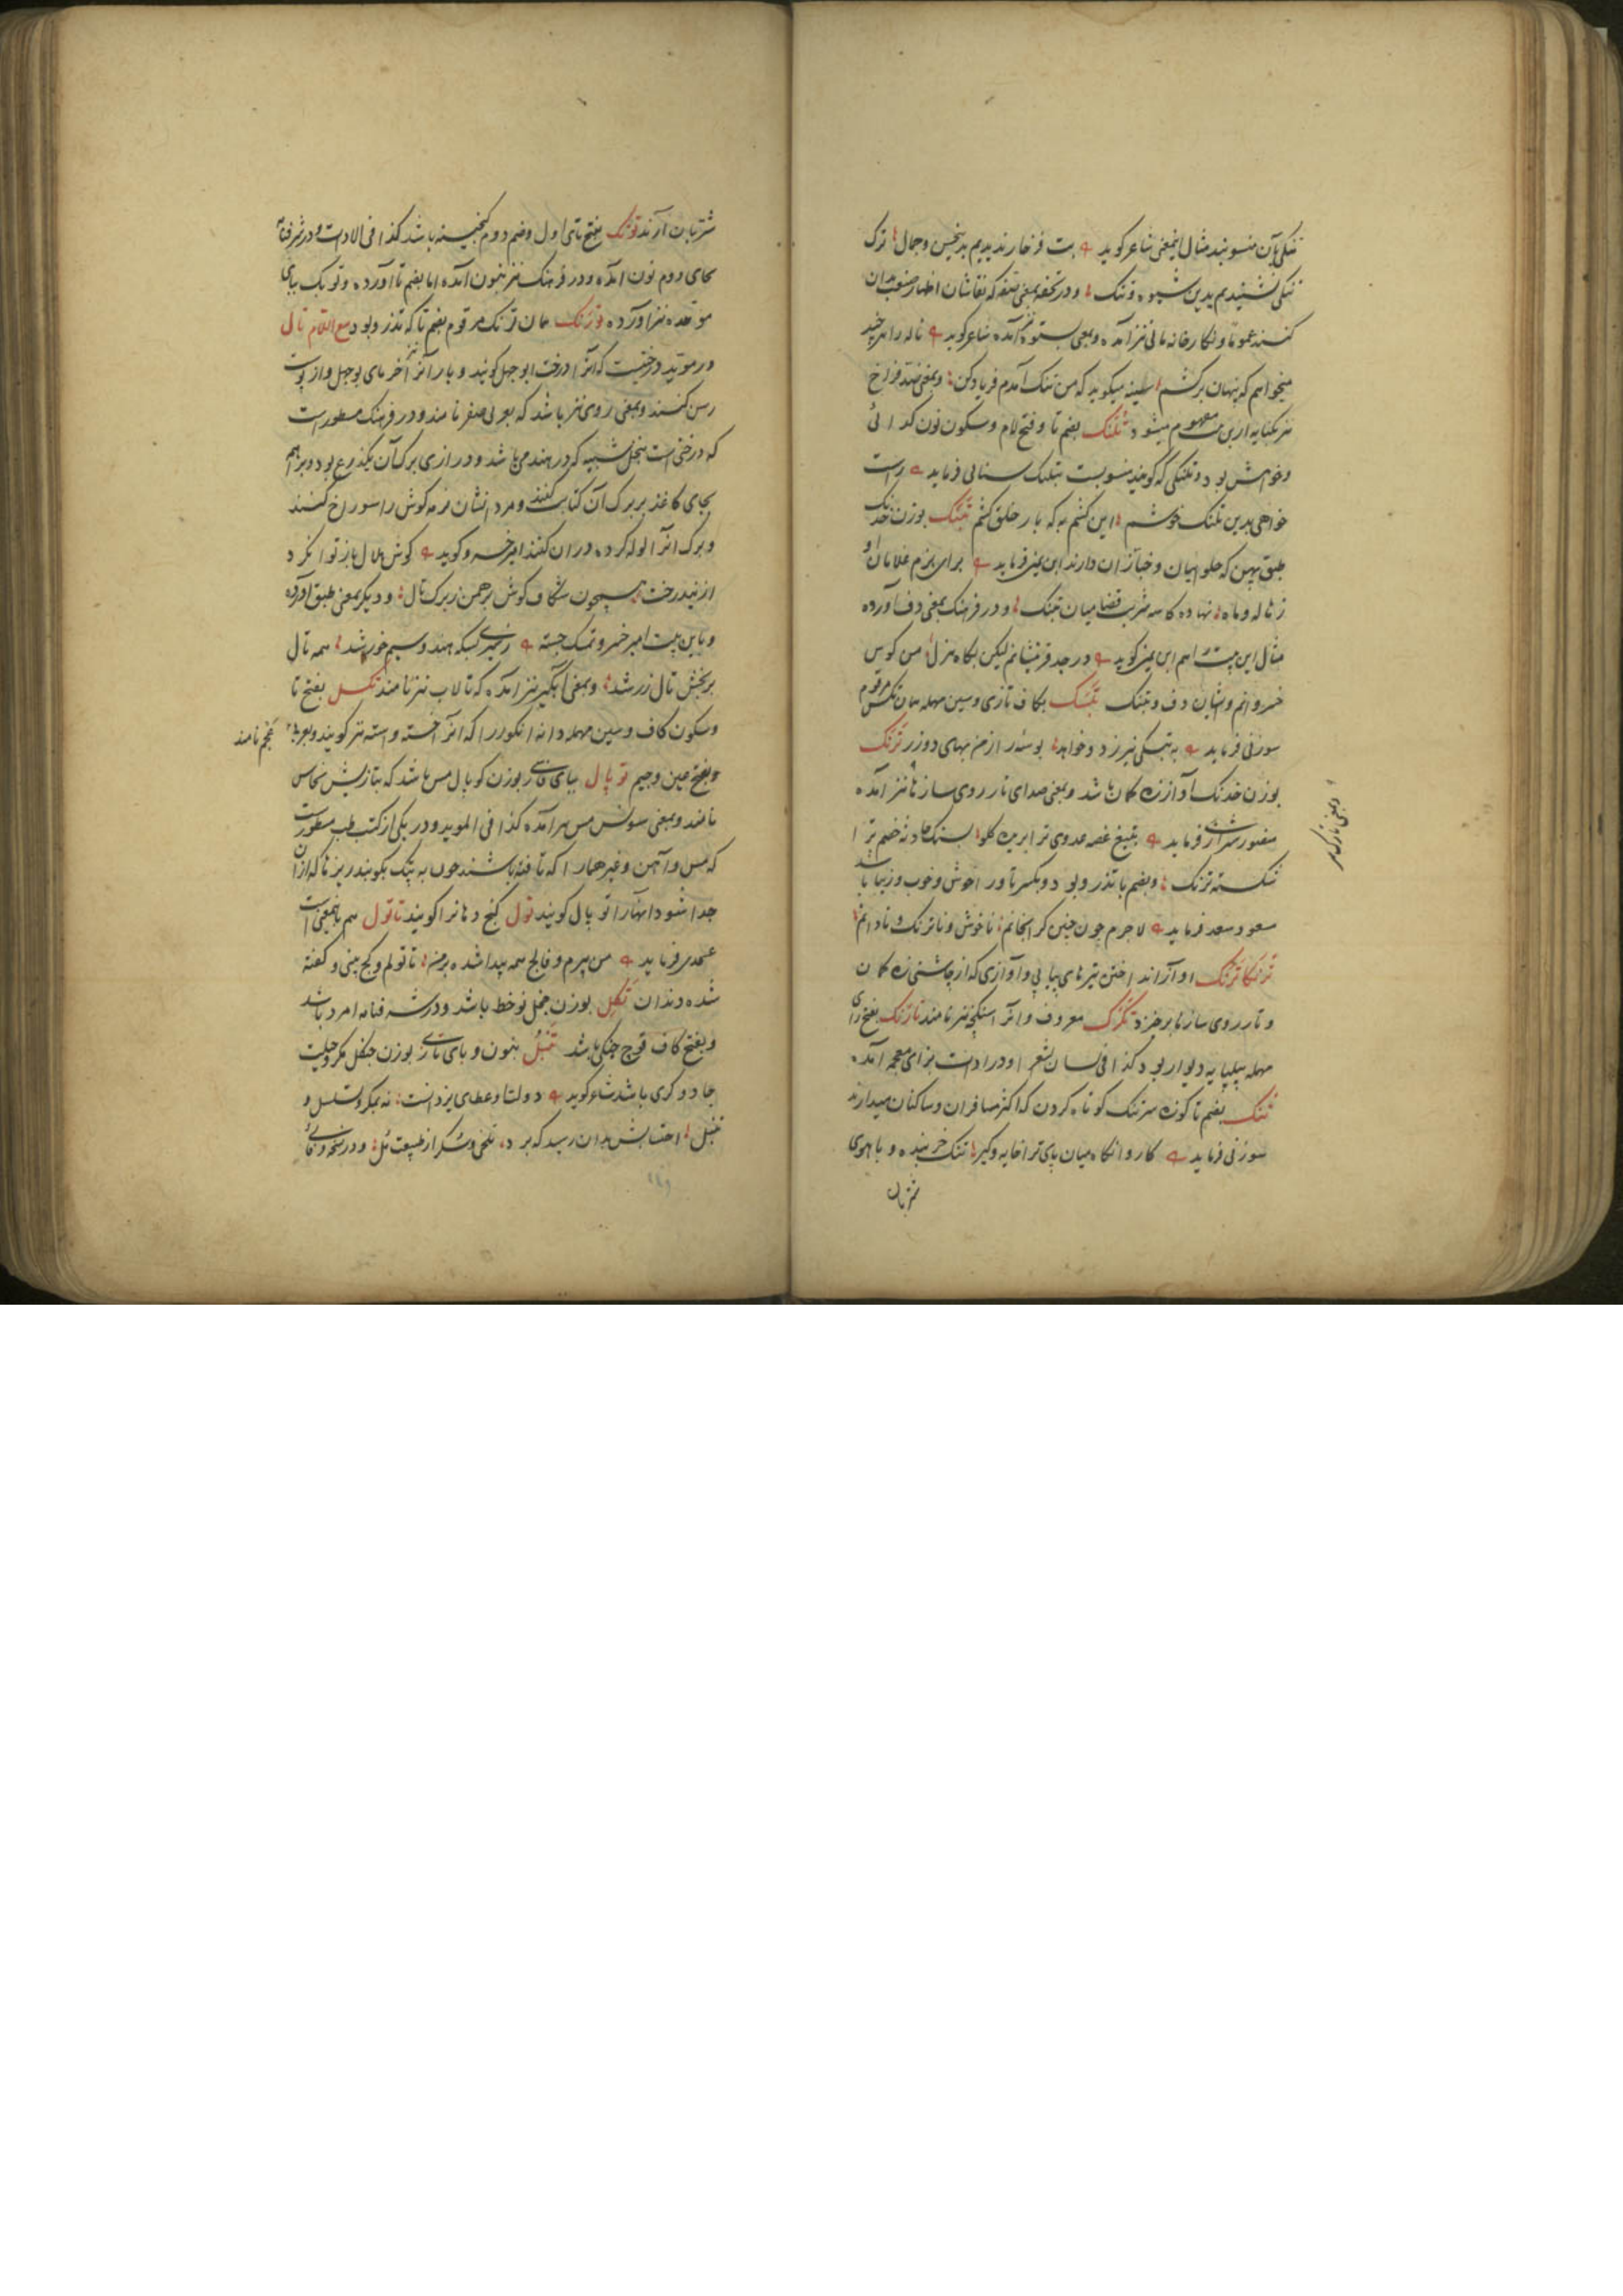 تنکی بآن منسوبند مثال اینمعنی شاعر کوید بت فرخار ندیدیم بدین حسن و جمال ترک
تنکی نشنیدیم بدین شیوه و تنک و در تحفه بمعنی
کنند عموما و نکارخانه مانی نیز آمده و بمعنی ستوه نیز آمده شاعر کوید ناله را هر چند
میخواهم که پنهان برکشم سینه میکوید که من تنک آمدم فریاد کن و بمعنی
نیز بکنایه ازین بیت مفهوم میشود تلنک بضم تا و فتح لام و سکون نون کدائی
و خواهش بود و تلنکی که کویند منسوبست بتلنک سنائی فرماید راست
خواهی بدین تلنک خوشم این کنم به که بار خلق کشم تبنک بوزن خدنک
طبق پهن که حلوائیان و خبازان دارند ابن یمین فرماید برای بزم غلامان او
ز ژاله و ماه نهاده کاسه شربت قضا میان تبنک و در فرهنک بمعنی دف آورده
مثال این بیت هم ابن یمین کوید در جد فرشته‌ام لیکن بکاه هزل من کوس
خسروانم و ایشان دف و تبنک تکسک بکاف تازی و سین مهمله همان تکس مرقوم
سوزنی فرماید به تبسکی نیرزد و خواهد بوسه‌ار از من بهای دو زر ترنک
بوزن خدنک آواز زه کمان باشد و بمعنی صدای تار روی سازها نیز آمده
منصور شیرازی فرماید بتیغ غصه عدوی ترا بریده کلو بسنک حادثه خصم ترا
شکسته ترنک و بضم با تذرو بود و بکسر تا و را خوش و خوب و زیبا باشد
مسعود سعد فرماید لاجرم چون چنین کرانجانم ناخوش و ناترنک و نادانم
ترنکا ترنک آواز انداختن تیرهای پیاپی و آوازی که از چاشنی زه کمان
و تار روی سازها برخیزد تکرک معروف و آنرا سنکچه نیز نامند تارنک بفتح رای
مهمله پیلپایه دیوار بود کذا فی لسان الشعرا و در ادات بزای معجمه آمده
تنک بضم تا کوزه سر تنک کوتاه کردن که اکثر مسافران و ساکنان میدارند
سوزنی فرماید کاروانکاه میان پای ترا خایه و کیر تنک خربنده و باهوی
شتربان
و بمعنی نازک
شتربان آرند تونک بفتح تای اول و ضم دوم کنجینه باشد کذا فی الادات و در شرفنامه
بجای دوم نون آمده و در فرهنک نیز بنون آمده اما بضم تا آورده و توبک ببای
موحده نیز آورده تورنک همان ترنک مرقوم بضم تا که تذرو بود مع اللام تال
در مؤید درختیست که آنرا درخت ابوجهل کویند و بار آنرا خرمای بوجهل و از پوست
رسن کنند و بمعنی روی نیز باشد که بعربی صفر نامند و در فرهنک مسطورست
که درختی است بنخل شبیه که در هند می‌باشد و درازی برک آن یکذرع بود و براهمه
بجای کاغذ بر برک آن کتابت کنند و مردانشان نرمه کوش را سوراخ کنند
و برک آنرا لوله کرده در آن کنند امیر خسرو کوید کوش هلال باز توان کرد
از نیزه رخت همچون شکاف کوش برهمن ز برک تال و دیکر بمعنی طبق آورده
و باین بیت امیر خسرو تمسک جسته زمین سربسر هند و سیم خور شد همه تال
بر بخش تال زر شد و بمعنی آبکیر نیز آمده که تالاب نیز نامند تکسل بفتح تا
و سکون کاف و سین مهمله دانه انکور را که آنرا خسته و استه نیز کویند و بعربی
عجم نامند
و بفتح عین و جیم توپال ببای فارسی بوزن کوپال مس باشد که بتازیش نحاس
نامند و بمعنی سونش مس هم آمده کذا فی المؤید و در یکی از کتب طب مسطورست
که مس و آهن و غیر هما را که تافته باشند چون به پتک بکوبند ریزها که از آن
جدا شود آنها را توپال کویند تول کنج دهانرا کویند تاتول هم باینمعنی است
عسجدی فرماید من پیرم و فالج همه پیدا شده بر من تاتولم و کج بینی و کفته
شده دندان تکل بوزن خجل نوخط باشد و در شرفنامه امرد باشد
و بفتح کاف قوچ جنکی باشد تنبل بنون و بای تازی بوزن جنکل مکر و حیلت
جادوکری باشد شاعر کوید دولتا و عطای یزدانست نه بمکر و تسلسل و
تنبل احتسابش بدان رسید که برد تلخی و سکر از طبیعت مل و در نسخه وفائی